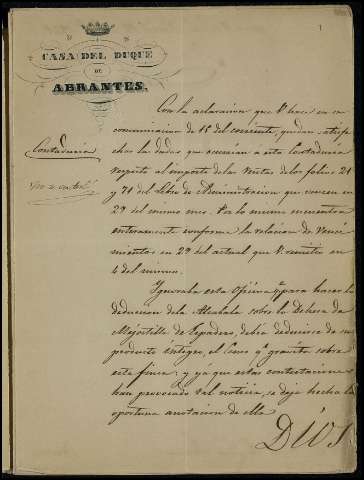 1
CASA DEL DUQUE
DE
ABRANTES.
Contaduría
No se contestó
Con la aclaracion que V. hace en su
comunicacion de 15 del corriente, quedan satisfe
chas las dudas que ocurrian á esta Contaduría
respecto al importe de las rentas de los folios 21
y 71 del Libro de Administracion que vencen en
29 del mismo mes. Por lo mismo encuentra
enteramente conforme la relacion de Venci
mientos en 29 del actual que V. remitió en
4 del mismo.
Ignoraba esta Oficina q.e para hacer la
deduccion de la Alcabala sobre la Dehesa de
Majostillo de Tepadero, debia deducirse de su
producto íntegro, el Censo q.e gravita sobre
esta finca: y ya que estas contestaciones
han provocado tal noticia, se deja hecha la
oportuna anotacion de ella